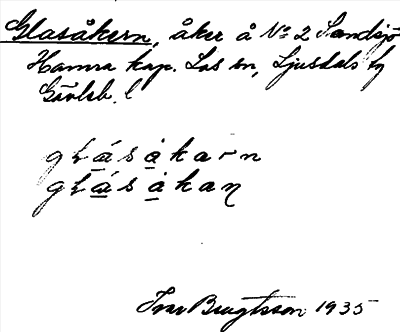 Glasåkern, åker å No 2 Sandsjö
Hamra kap. Los sn, Ljusdals tg
Gävleb. l
glásåkarn
glásåkaṇ
Ivar Bengtsson 1935